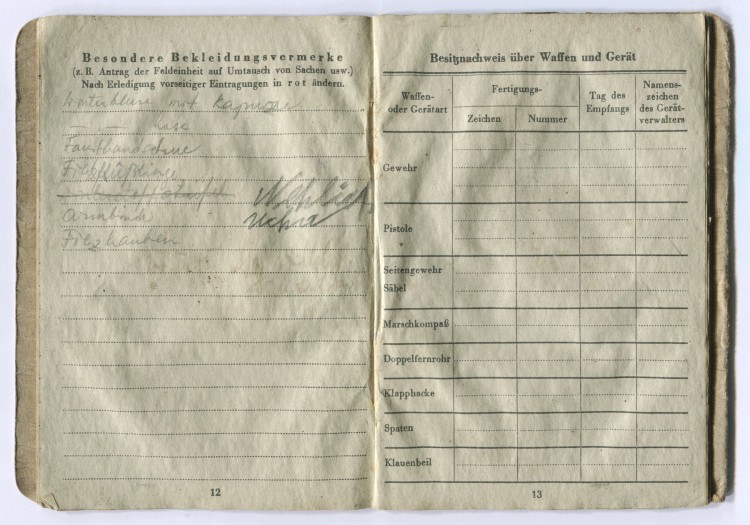 Besondere Bekleidungsvermerke
(z. B. Antrag der Feldeinheit auf Umtausch von Sachen usw.)
Nach Erledigung vorseitiger Eintragungen in rot ändern.
mit Kapuze
— " — hose
Fausthandschuhe
Filzfüßlinge
Armbinde
Filzhauben
12
Besitznachweis über Waffen und Gerät
Waffen- oder Geräteart
Fertigungs-
Zeichen
Nummer
Tag des Empfangs
Namens- zeichen des Gerät- verwalters
Gewehr
Pistole
Seitengewehr
Säbel
Marschkompaß
Doppelfernrohr
Klapphacke
Spaten
Klauenbeil
13